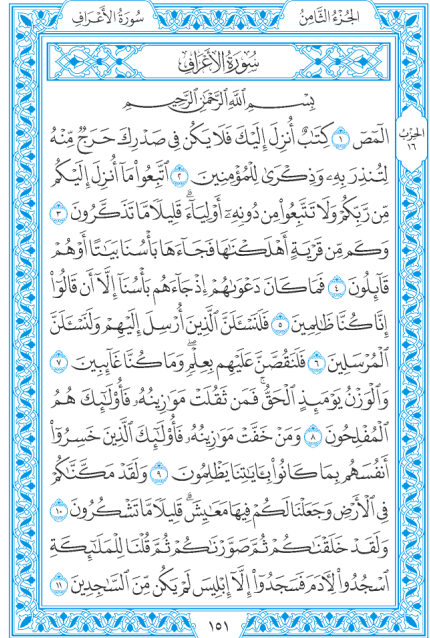 سُورَةُ الأَعْرَافِ
الجُزْءُ الثَّامِنُ
سُورَةُ الأَعْرَافِ
بِسْمِ ٱللَّهِ ٱلرَّحْمَٰنِ ٱلرَّحِيمِ
الٓمٓصٓ ١ كِتَٰبٌ أُنزِلَ إِلَيْكَ فَلَا يَكُن فِى صَدْرِكَ حَرَجٌ مِّنْهُ
الحِزْبُ
١٦
لِتُنذِرَ بِهِۦ وَذِكْرَىٰ لِلْمُؤْمِنِينَ ٢ ٱتَّبِعُوا۟ مَآ أُنزِلَ إِلَيْكُم
مِّن رَّبِّكُمْ وَلَا تَتَّبِعُوا۟ مِن دُونِهِۦٓ أَوْلِيَآءَ ۗ قَلِيلًا مَّا تَذَكَّرُونَ ٣
وَكَم مِّن قَرْيَةٍ أَهْلَكْنَٰهَا فَجَآءَهَا بَأْسُنَا بَيَٰتًا أَوْ هُمْ
قَآئِلُونَ ٤ فَمَا كَانَ دَعْوَىٰهُمْ إِذْ جَآءَهُم بَأْسُنَآ إِلَّآ أَن قَالُوٓا۟
إِنَّا كُنَّا ظَٰلِمِينَ ٥ فَلَنَسْـَٔلَنَّ ٱلَّذِينَ أُرْسِلَ إِلَيْهِمْ وَلَنَسْـَٔلَنَّ
ٱلْمُرْسَلِينَ ٦ فَلَنَقُصَّنَّ عَلَيْهِم بِعِلْمٍ ۖ وَمَا كُنَّا غَآئِبِينَ ٧
وَٱلْوَزْنُ يَوْمَئِذٍ ٱلْحَقُّ ۚ فَمَن ثَقُلَتْ مَوَٰزِينُهُۥ فَأُو۟لَٰٓئِكَ هُمُ
ٱلْمُفْلِحُونَ ٨ وَمَنْ خَفَّتْ مَوَٰزِينُهُۥ فَأُو۟لَٰٓئِكَ ٱلَّذِينَ خَسِرُوٓا۟
أَنفُسَهُم بِمَا كَانُوا۟ بِـَٔايَٰتِنَا يَظْلِمُونَ ٩ وَلَقَدْ مَكَّنَّٰكُمْ
فِى ٱلْأَرْضِ وَجَعَلْنَا لَكُمْ فِيهَا مَعَٰيِشَ ۗ قَلِيلًا مَّا تَشْكُرُونَ ١٠
وَلَقَدْ خَلَقْنَٰكُمْ ثُمَّ صَوَّرْنَٰكُمْ ثُمَّ قُلْنَا لِلْمَلَٰٓئِكَةِ
ٱسْجُدُوا۟ لِءَادَمَ فَسَجَدُوٓا۟ إِلَّآ إِبْلِيسَ لَمْ يَكُن مِّنَ ٱلسَّٰجِدِينَ ١١
١٥١